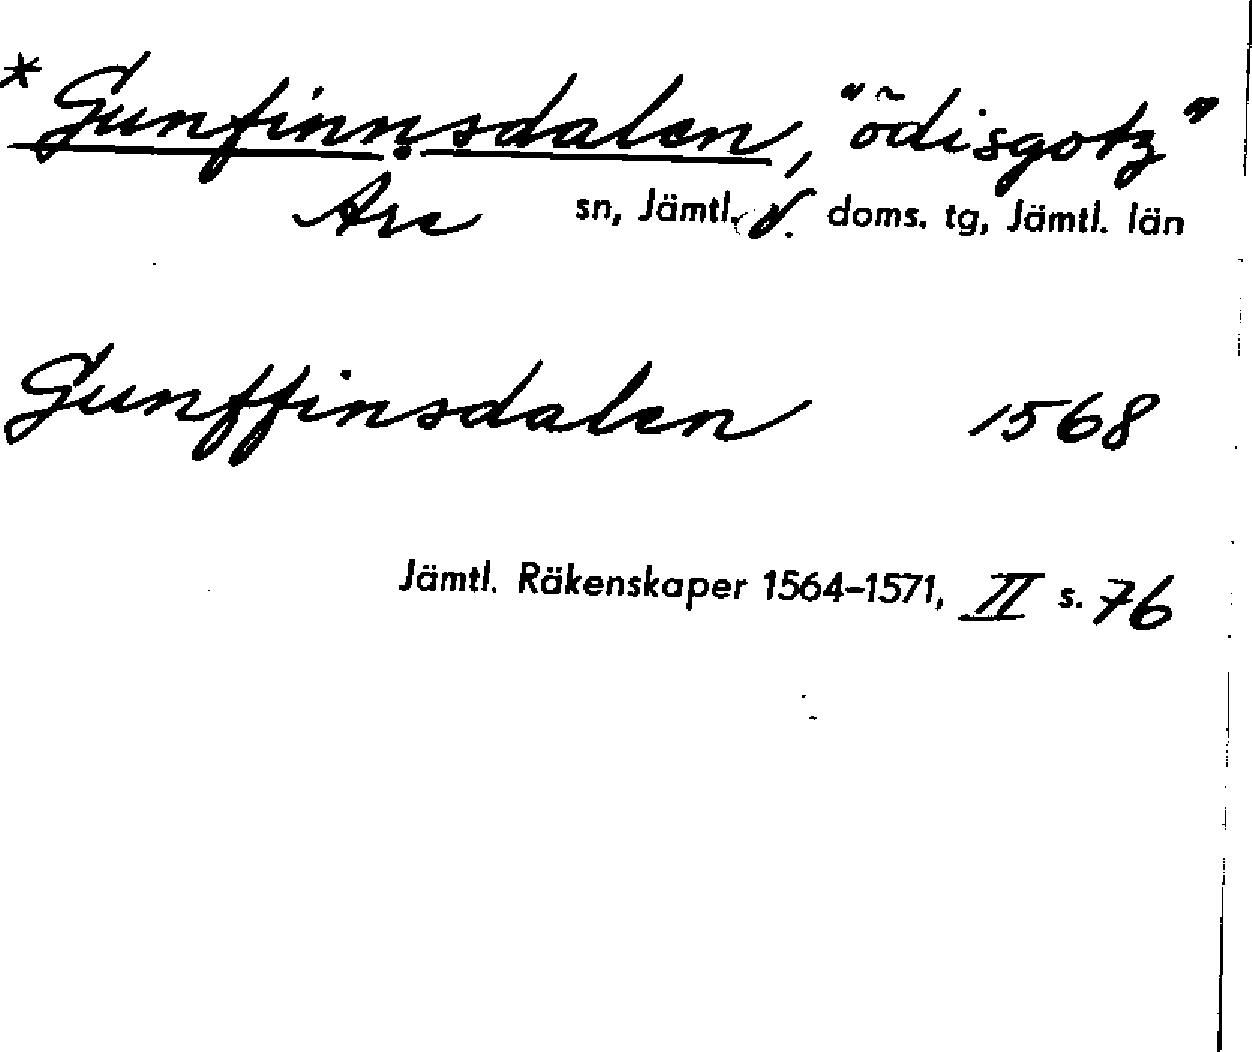 * Gunfinnsdalen, "õdisgotz"
Are sn, Jämtl. v. doms. tg, Jämtl. län
Gunffinsdalen 1568
Jämtl. Räkenskaper 1564–1571, II s. 76